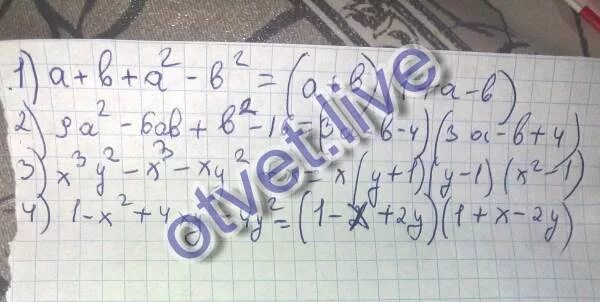 1) a + b + a² - b² = (a + b) + a - b)
2) 9a² - 6ab + b² - 1 b - 4)(3a - b + 4)
3) x³y² - x³ - xy² = x(y + 1)(y - 1)(x² - 1)
4) 1 - x² + 4xy - 4y² = (1 - x + 2y)(1 + x - 2y)
otvet.live